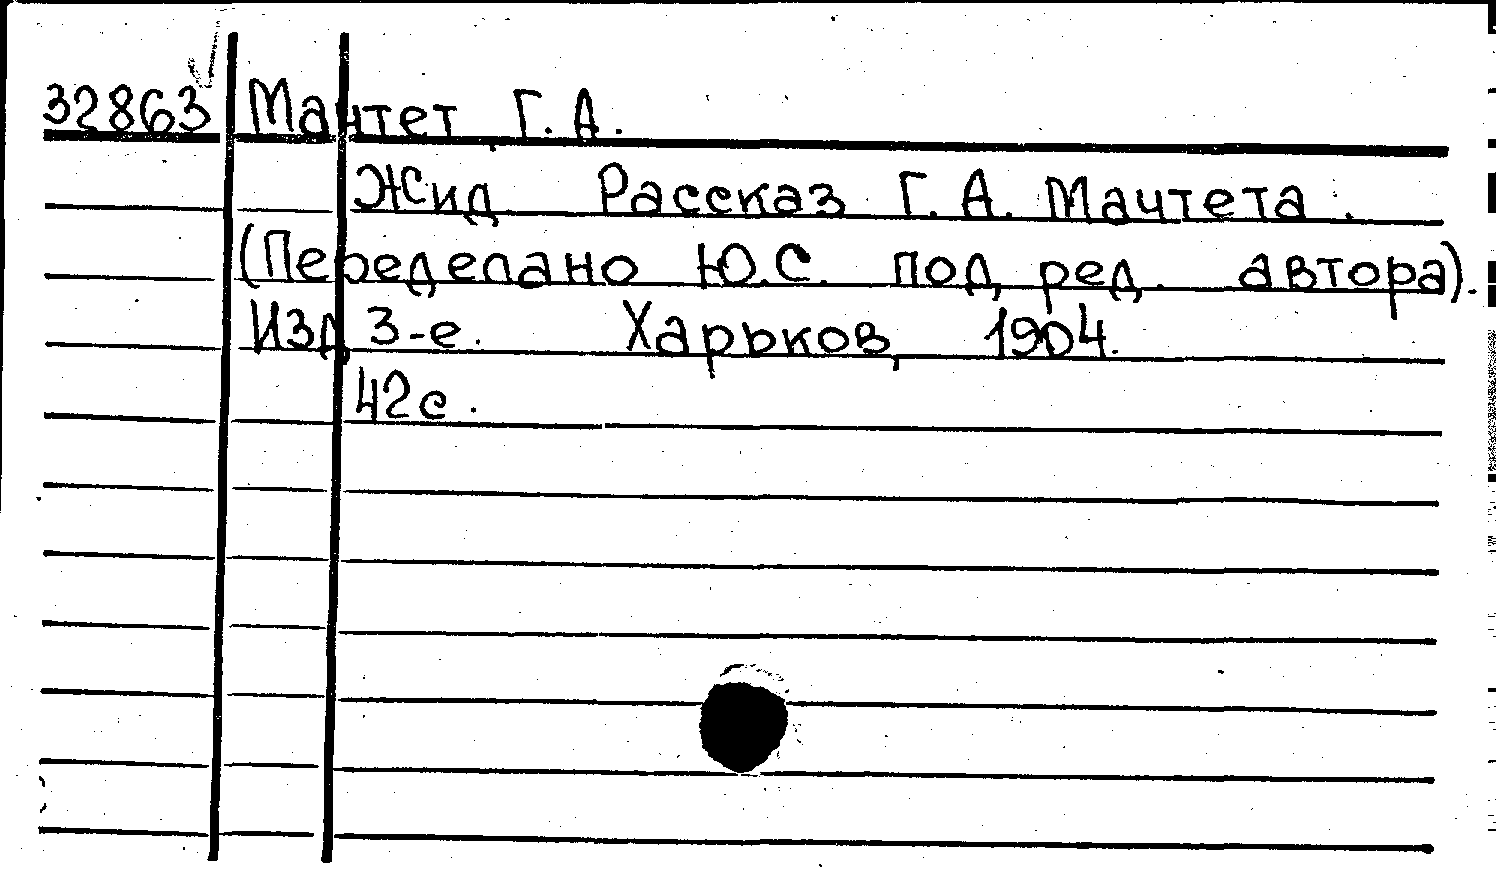 32863 Мачтет Г. А.
Жид Рассказ Г. А. Мачтета.
(Переделано Ю.С. под ред. автора).
Изд 3-е. Харьков, 1904.
42с.